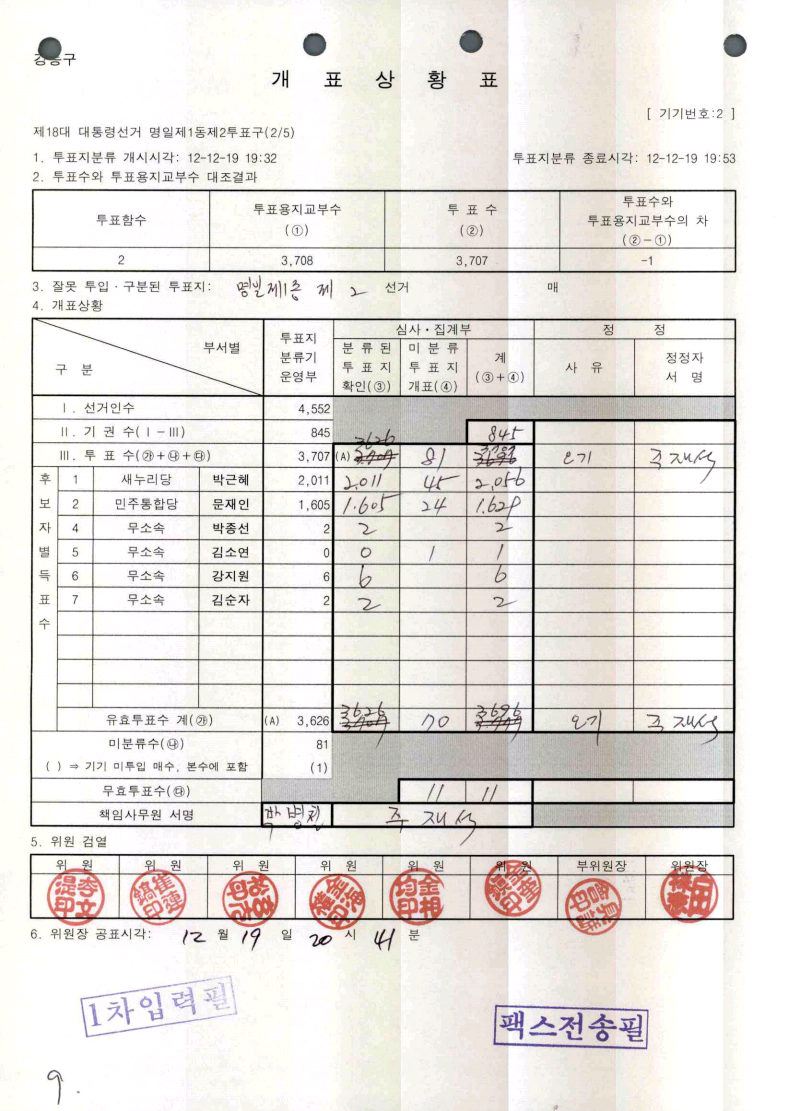 강동구
개 표 상 황 표
[ 기기번호:2 ]
제18대 대통령선거 명일제1동제2투표구(2/5)
1. 투표지분류 개시시각: 12-12-19 19:32 투표지분류 종료시각: 12-12-19 19:53
2. 투표수와 투표용지교부수 대조결과
투표함수 투표용지교부수 (①) 투 표 수 (②) 투표수와 투표용지교부수의 차 (②-①)
2 3,708 3,707 -1
3. 잘못 투입·구분된 투표지: 명일제1동 제 2 선거 매
4. 개표상황
구 분 부서별 투표지 분류기 운영부 심사·집계부 정 정
분 류 된 투 표 지 확인(③) 미 분 류 투 표 지 개표(④) 계 (③+④) 사 유 정정자 서 명
Ⅰ. 선거인수 4,552
Ⅱ. 기 권 수(Ⅰ-Ⅲ) 845 845
Ⅲ. 투 표 수(㉮+㉯+㉰) 3,707 (A) 3626 81 오기 주재석
후보자별득표수
1 새누리당 박근혜 2,011 2,011 45 2,056
2 민주통합당 문재인 1,605 1,605 24 1,629
4 무소속 박종선 2 2 2
5 무소속 김소연 0 0 1 1
6 무소속 강지원 6 6 6
7 무소속 김순자 2 2 2
유효투표수 계(㉮) (A) 3,626 3626 70 3696 오기 주재석
미분류수(㉯) 81
( ) ⇒ 기기 미투입 매수, 본수에 포함 (1)
무효투표수(㉰) 11 11
책임사무원 서명 주재석
5. 위원 검열
위 원 위 원 위 원 위 원 위 원 위 원 부위원장 위원장
6. 위원장 공표시각: 12 월 19 일 20 시 41 분
1차입력필
팩스전송필
9.